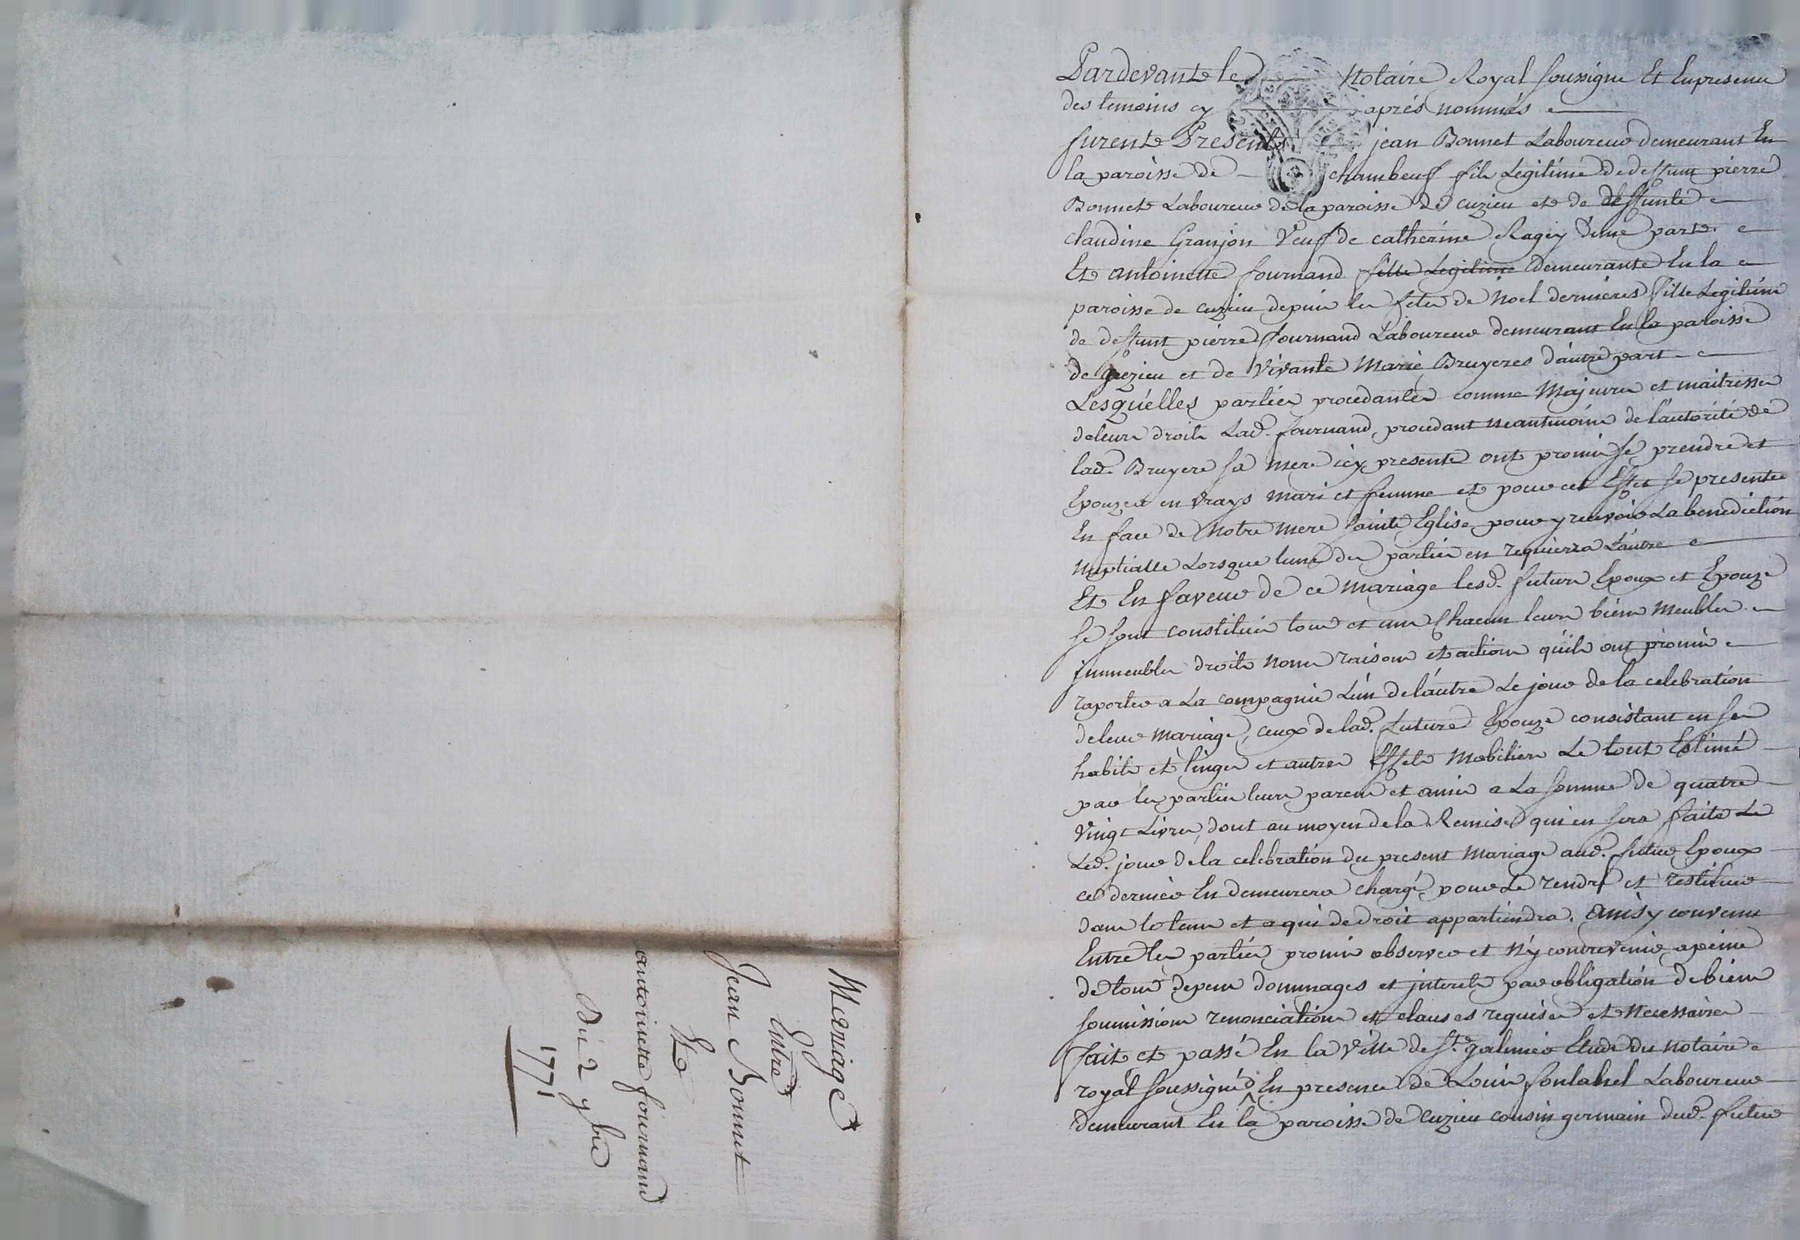 Mariage
Entre
Jean Bonnet
Et
antoinette fournand
Du 2 7bre
1771
Pardevant le Notaire Royal soussigné Et En presence
des temoins cy après nommés
furent Present jean Bonnet Laboureur demeurant En
la paroisse de chambeuf fils Legitime de deffunt pierre
Bonnet Laboureur de la paroisse de cuzieu et de deffunte
claudine Granjon Veuf de catherine Ragey d'une part
Et antoinette fournand fille Legitime demeurante En la
paroisse de cuzieu depuis les fetes de Noel dernieres fille Legitime
de deffunt pierre fournand Laboureur demeurant En la paroisse
de grezieu et de Vivante Marie Bruyeres d'autre part
Lesquelles parties procedantes comme Majeures et maitresses
de leurs droits Lad. fournand procedant neantmoins de l'autorité de
lad. Bruyere sa mere icy presente ont promis se prendre et
Epouzer en vrays mari et femme et pour cet Effet se presenter
En face de Notre mere sainte Eglise pour y recevoir La benediction
nuptialle Lorsque l'une des parties en requierra L'autre
Et En faveur de ce mariage lesd. futurs Epoux et Epouze
se sont constitués tous et uns chacun leurs biens Meubles
jmmeubles droits noms raisons et actions qu'ils ont promis
raporter a La compagnie L'un de l'autre Le jour de la celebration
de leur mariage, ceux de lad. future Epouze consistant en ses
habits et linges et autres Effets Mobiliers Le tout Estimé
par les parties leurs parens et amis a La somme de quatre
vingt Livres, dont au moyen de la Remise qui en sera faite Le
Led. jour de la celebration du present Mariage aud. futur Epoux
ce dernier En demeurera chargé pour Le rendre et restituer
dans le tems et a qui de droit appartiendra. Ainsy convenu
Entre les parties promis observer et n'y contrevenir a peine
de tous depens dommages et jnterets par obligation de biens
soumissions renonciations et clauses requises et necessaires
fait et passé En la Ville de St. galmier Etude du notaire
royal soussigné En presence de Louis fontanel Laboureur
demeurant En la paroisse de cuzieu cousin germain dud. futur